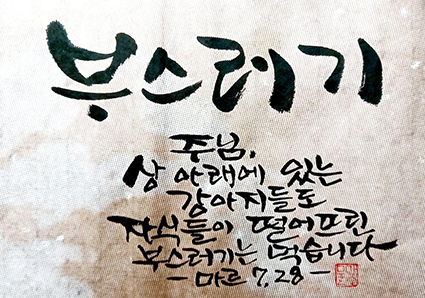 부스러기
주님,
상 아래에 있는
강아지들도
자식들이 떨어뜨린
부스러기는 먹습니다
- 마르 7,28 -